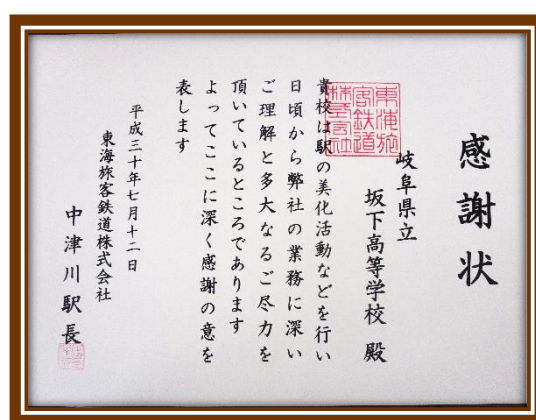 感謝状
岐阜県立
坂下高等学校 殿
貴校は駅の美化活動などを行い
日頃から弊社の業務に深い
ご理解と多大なるご尽力を
頂いているところであります
よってここに深く感謝の意を
表します
平成三十年七月十二日
東海旅客鉄道株式会社
中津川駅長
東海旅
客鉄道
株式会社